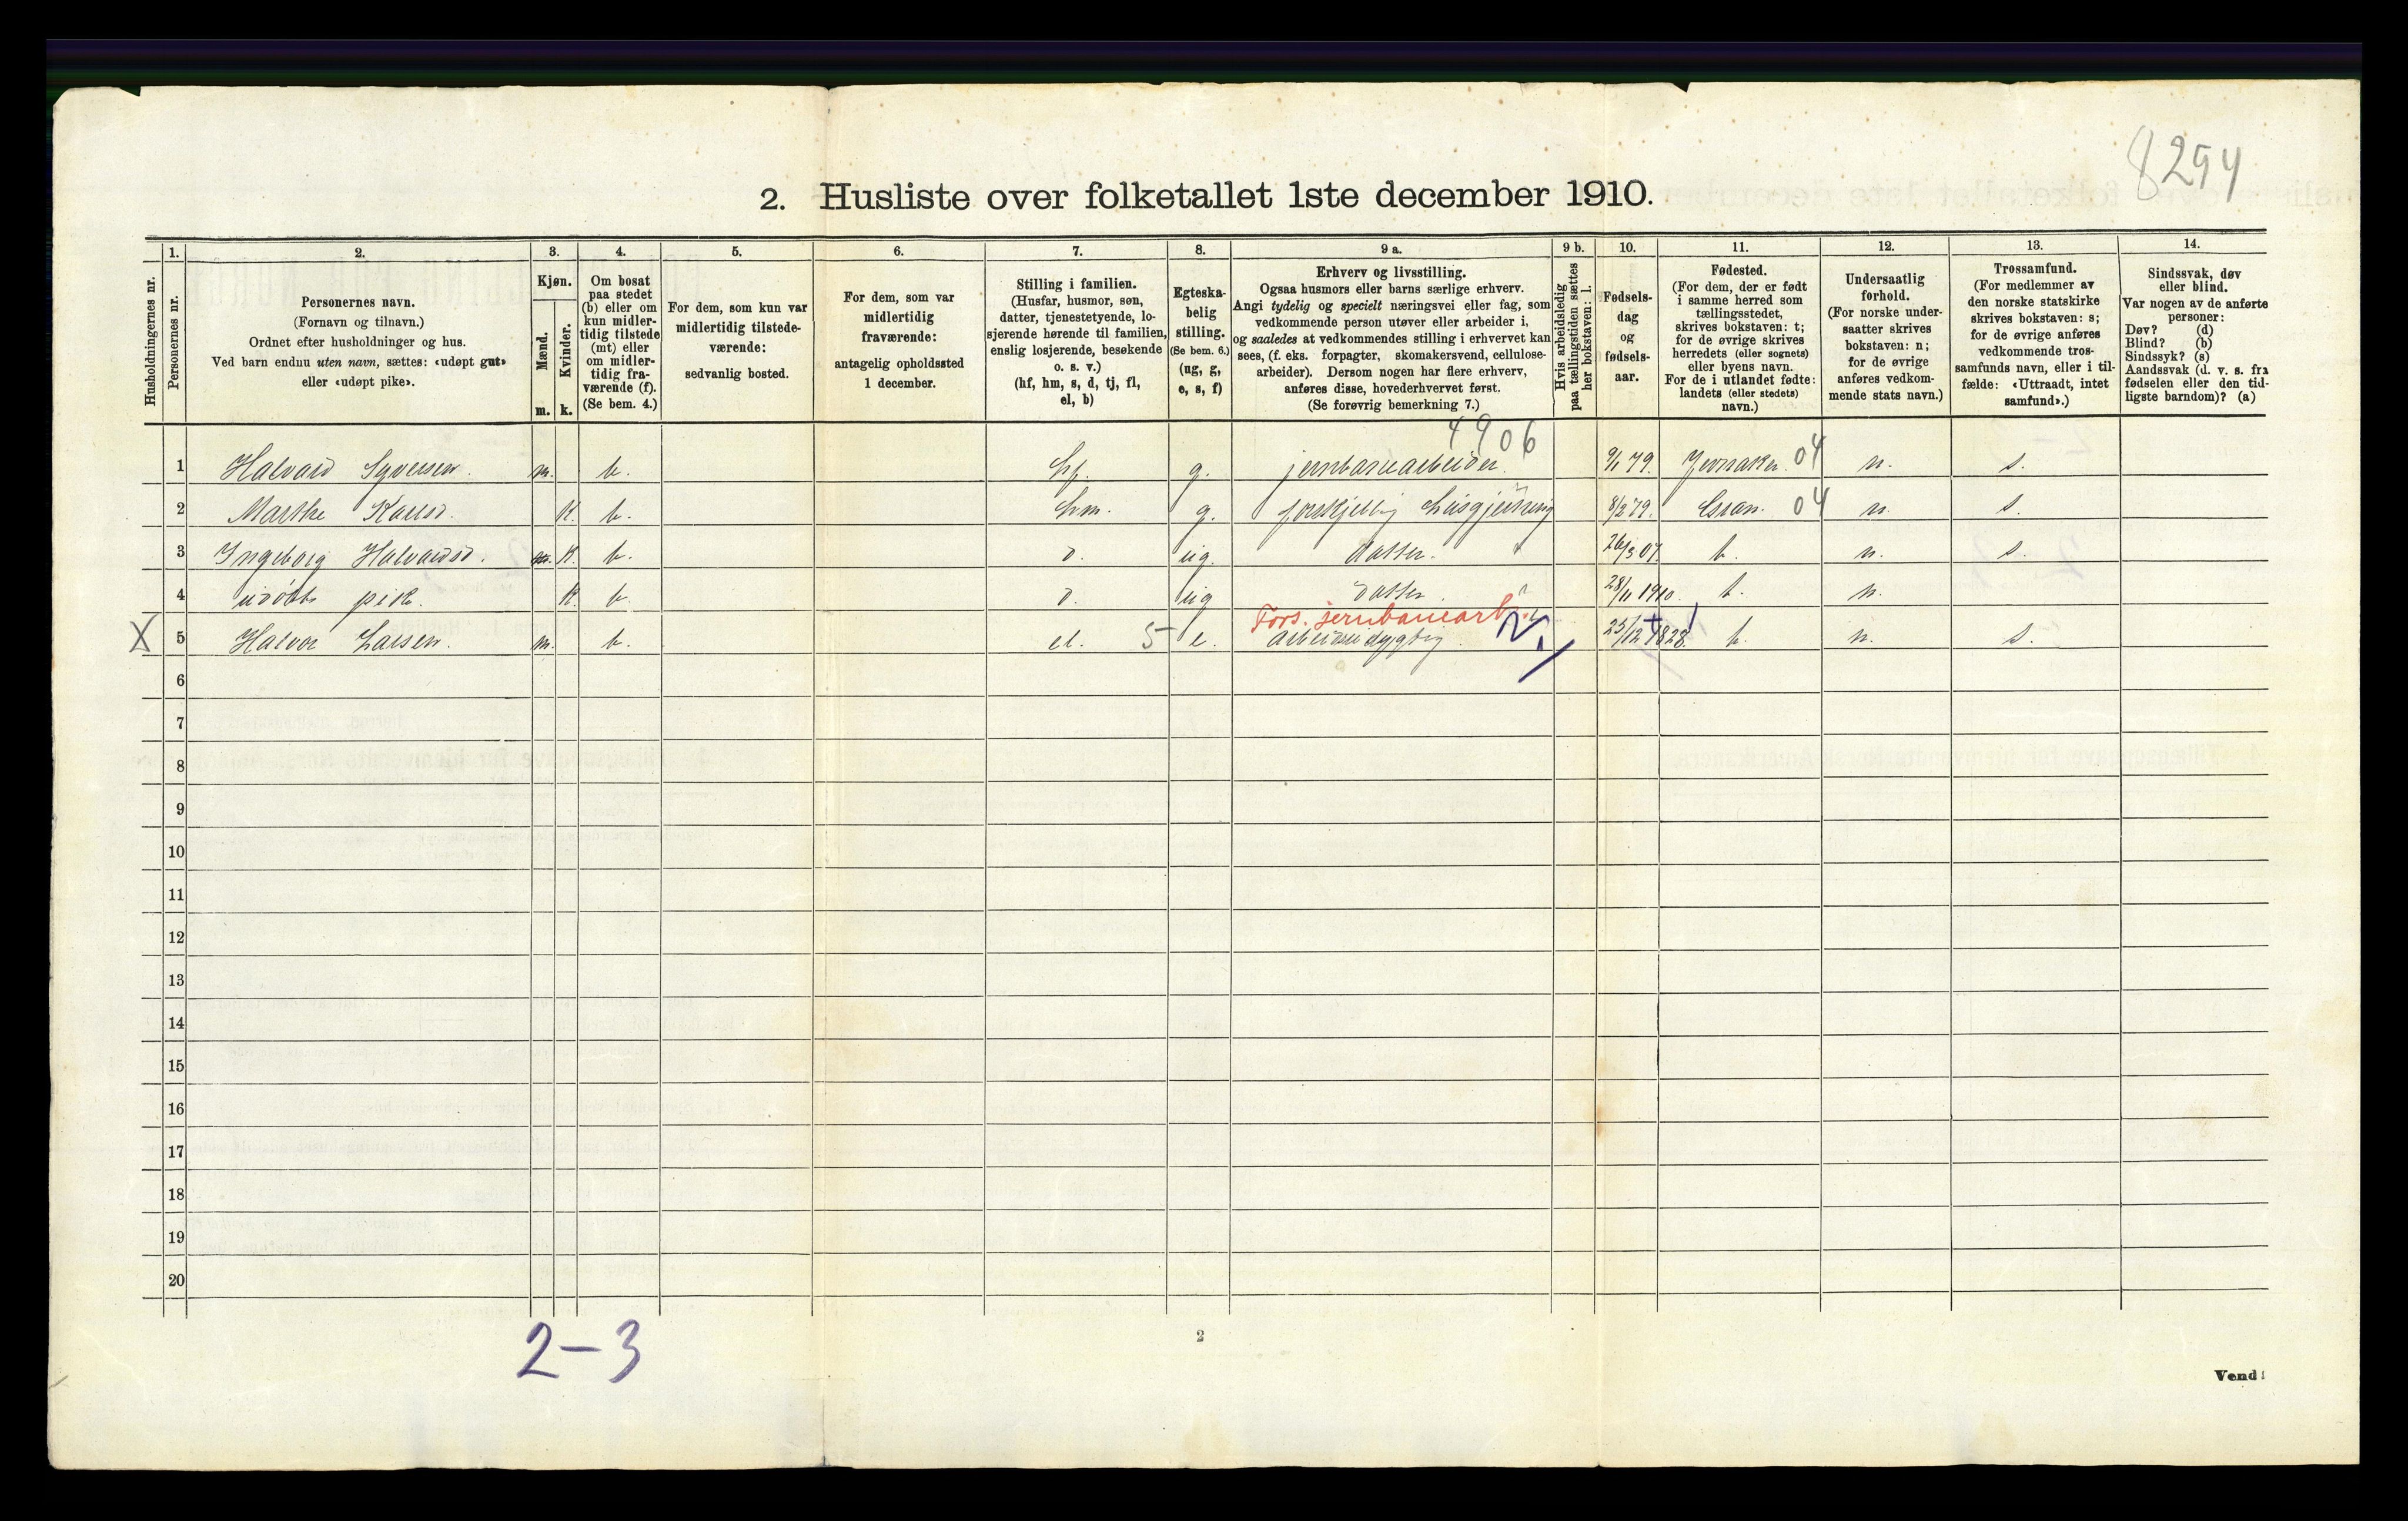 8294
2. Husliste over folketallet 1ste december 1910.
Husholdningernes nr.
1.
Personernes nr.
2.
Personernes navn.
(Fornavn og tilnavn.)
Ordnet efter husholdninger og hus.
Ved barn endnu uten navn, sættes: «udøpt gut»
eller «udøpt pike».
3.
Kjøn.
Mænd.
m.
Kvinder.
k.
4.
Om bosat
paa stedet
(b) eller om
kun midler-
tidig tilstede
(mt) eller
om midler-
tidig fra-
værende (f).
(Se bem. 4.)
5.
For dem, som kun var
midlertidig tilstede-
værende:
sedvanlig bosted.
6.
For dem, som var
midlertidig
fraværende:
antagelig opholdssted
1 december.
7.
Stilling i familien.
(Husfar, husmor, søn,
datter, tjenestetyende, lo-
sjerende hørende til familien,
enslig losjerende, besøkende
o. s. v.)
(hf, hm, s, d, tj, fl,
el, b)
8.
Egteska-
belig
stilling.
(Se bem. 6.)
(ug, g,
e, s, f)
9 a.
Erhverv og livsstilling.
Ogsaa husmors eller barns særlige erhverv.
Angi tydelig og specielt næringsvei eller fag, som
vedkommende person utøver eller arbeider i,
og saaledes at vedkommendes stilling i erhvervet kan
sees, (f. eks. forpagter, skomakersvend, cellulose-
arbeider). Dersom nogen har flere erhverv,
anføres disse, hovederhvervet først.
(Se forøvrig bemerkning 7.)
9 b.
Hvis arbeidsledig
paa tællingstiden sættes
her bokstaven: l.
10.
Fødsels-
dag
og
fødsels-
aar.
11.
Fødested.
(For dem, der er født
i samme herred som
tællingsstedet,
skrives bokstaven: t;
for de øvrige skrives
herredets (eller sognets)
eller byens navn.
For de i utlandet fødte:
landets (eller stedets)
navn.)
12.
Undersaatlig
forhold.
(For norske under-
saatter skrives
bokstaven: n;
for de øvrige
anføres vedkom-
mende stats navn.)
13.
Trossamfund.
(For medlemmer av
den norske statskirke
skrives bokstaven: s;
for de øvrige anføres
vedkommende tros-
samfunds navn, eller i til-
fælde: «Uttraadt, intet
samfund».)
14.
Sindssvak, døv
eller blind.
Var nogen av de anførte
personer:
Døv? (d)
Blind? (b)
Sindssyk? (s)
Aandssvak (d. v. s. fra
fødselen eller den tid-
ligste barndom)? (a)
4906
1 Halvard Syversen. m. b. hf. g. jernbanearbeider. 9/1 79. Jevnaker. 04 n. s.
2 Marthe Karlsd. K. b. hm. g. forskjellig husgjerning 8/2 79. Gran. 04 n. s.
3 Ingeborg Halvardsd. K. b. d. ug. datter. 26/3 07. t. n. s.
4 udöbt pike. K. b. d. ug datter 28/11 1910. t. n.
Fors. jernbanearb.
X 5 Halvor Larsen. m. b. el. 5 e. arbeidsudygtig. 25/12 1828. t. n. s.
6
7
8
9
10
11
12
13
14
15
16
17
18
19
20
2-3
2
Vend!